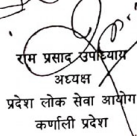 राम प्रसाद उपाध्याय
अध्यक्ष
प्रदेश लोक सेवा आयोग
कर्णाली प्रदेश